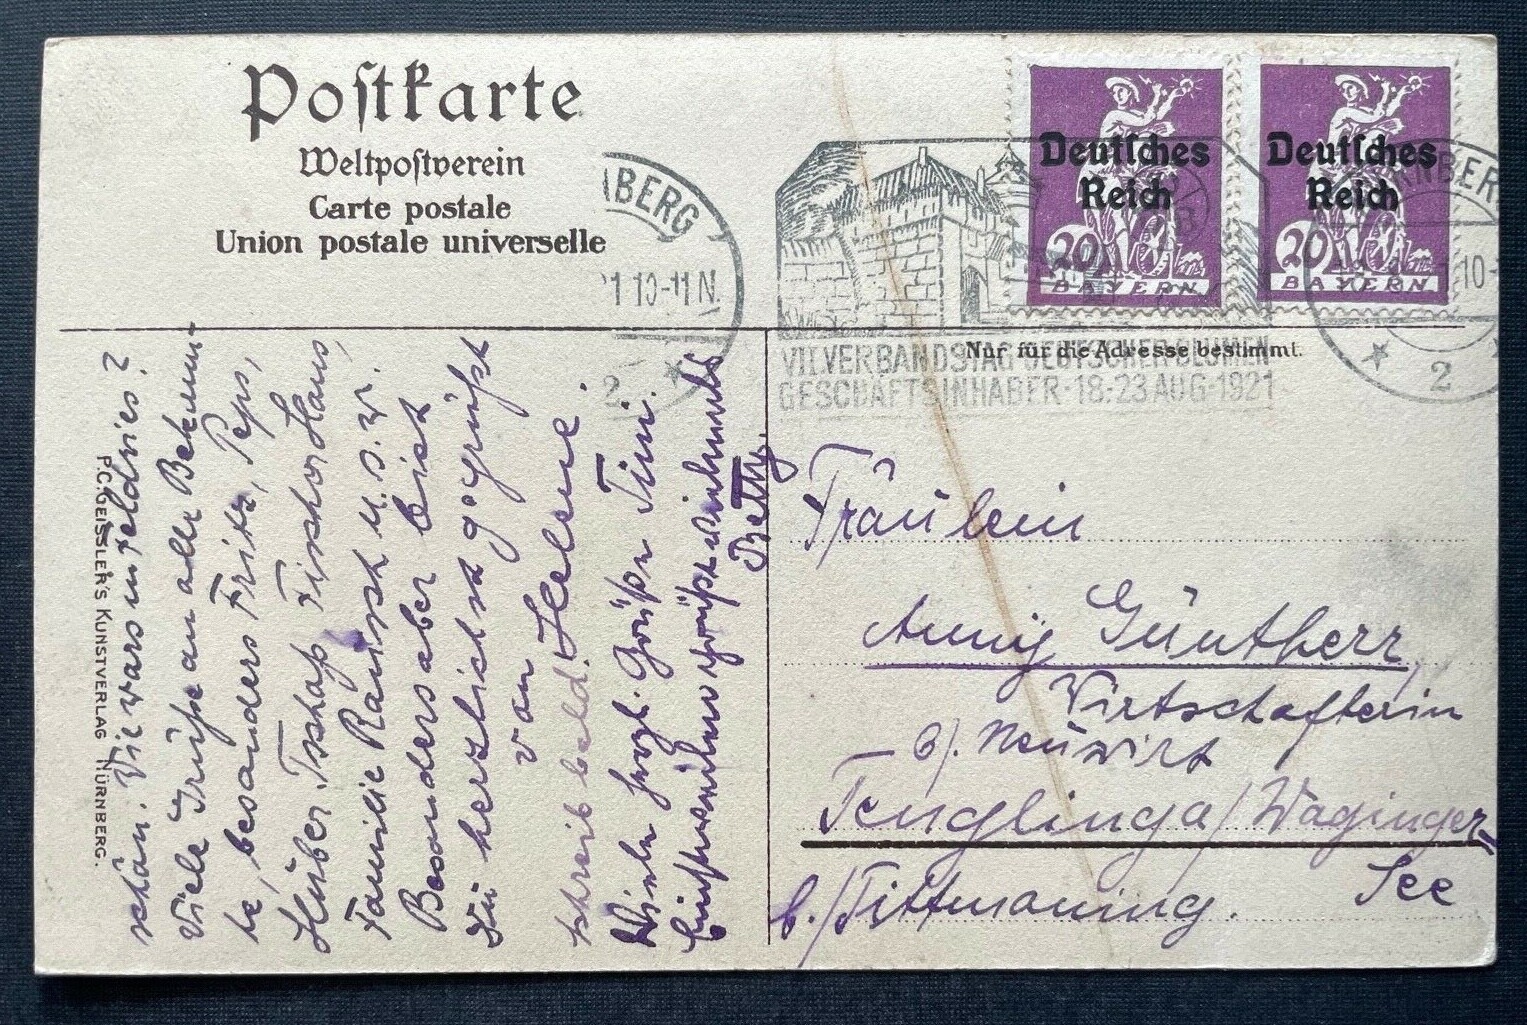 Postkarte
Weltpostverein
Carte postale
Union postale universelle
Deutsches
Reich
20
BAYERN
Deutsches
Reich
20
BAYERN
NBERG
1 10-11 N.
2
RNBERG
10-
2
VII VERBANDSTAG DEUTSCHER BLUMEN
GESCHÄFTSINHABER · 18:23 AUG · 1921
Nur für die Adresse bestimmt.
P.C. GEISSLER'S KUNSTVERLAG NÜRNBERG.
schön. Wie wars in Feldwies?
Viele Grüße an alle Bekann-
te, besonders Fritz, Peps,
Huber, Fischer Hans,
Familie u.s.w.
Besonders aber bist
Du herzlichst gegrüßt
von Helene.
schreib bald.
Viele herzl. Grüße Timi.
Betty.
Fräulein
Anny Güntherr
Wirtschafterin
b/. Neuwirt
Tenglinga/Waginger
See
b./Tittmoning.